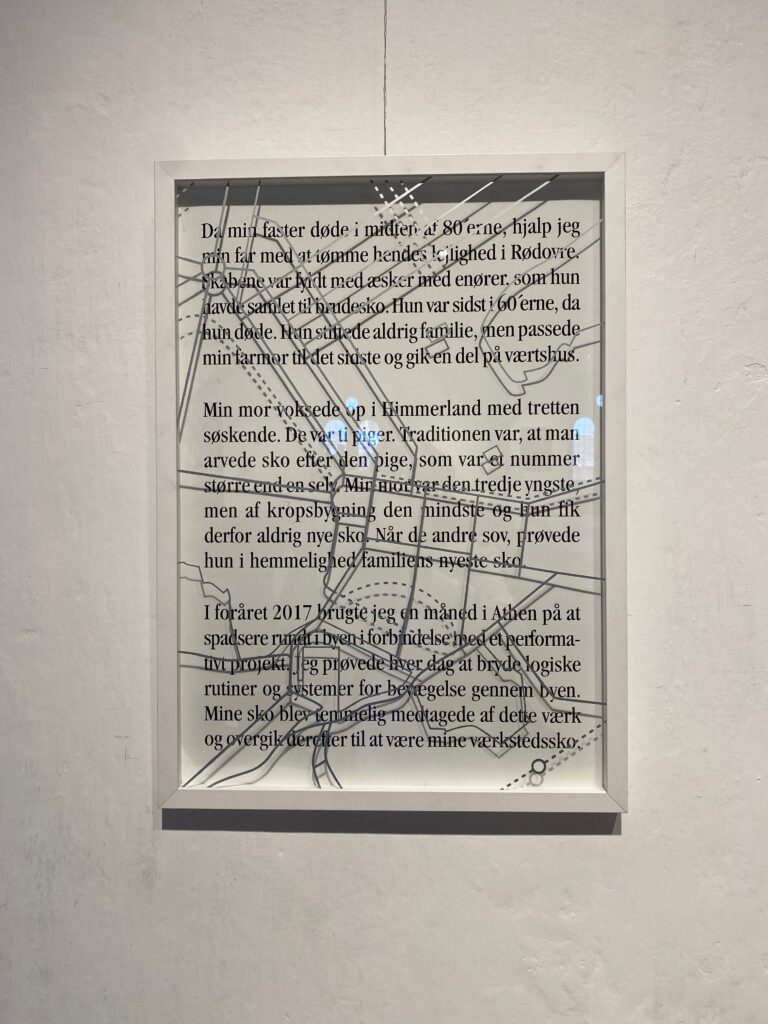 Da min faster døde i midten af 80´erne, hjalp jeg
min far med at tømme hendes lejlighed i Rødovre.
Skabene var fyldt med æsker med enører, som hun
havde samlet til brudesko. Hun var sidst i 60´erne, da
hun døde. Hun stiftede aldrig familie, men passede
min farmor til det sidste og gik en del på værtshus.
Min mor voksede op i Himmerland med tretten
søskende. De var ti piger. Traditionen var, at man
arvede sko efter den pige, som var et nummer
større end en selv. Min mor var den tredje yngste
men af kropsbygning den mindste og hun fik
derfor aldrig nye sko. Når de andre sov, prøvede
hun i hemmelighed familiens nyeste sko.
I foråret 2017 brugte jeg en måned i Athen på at
spadsere rundt i byen i forbindelse med et performa-
tivt projekt. Jeg prøvede hver dag at bryde logiske
rutiner og systemer for bevægelse gennem byen.
Mine sko blev temmelig medtagede af dette værk
og overgik derefter til at være mine værkstedssko.